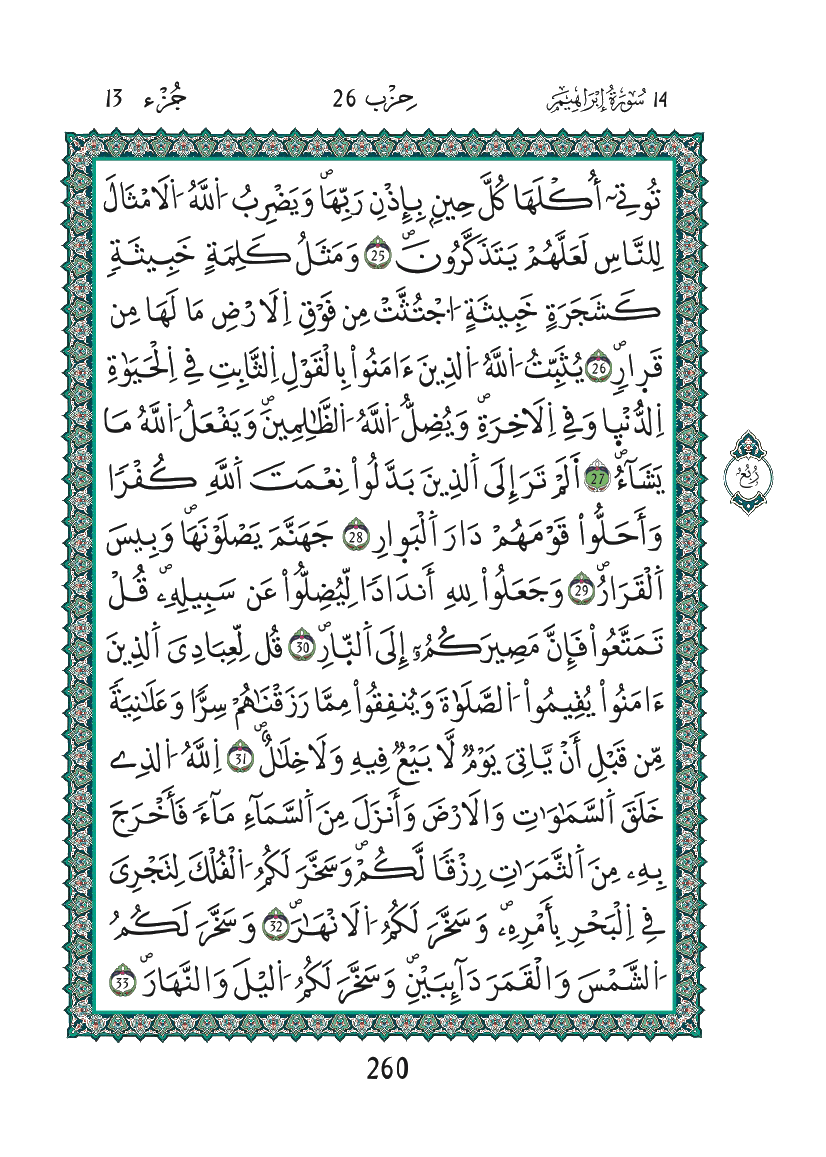 14 سُورَةُ إِبْرَاهِيمَ حِزْب 26 جُزْء 13
تُوتِےٓ أُكْلَهَا كُلَّ حِينِۢ بِإِذْنِ رَبِّهَاۖ وَيَضْرِبُ اُ۬للَّهُ اُ۬لَامْثَالَ
لِلنَّاسِ لَعَلَّهُمْ يَتَذَكَّرُونَۖ 25 وَمَثَلُ كَلِمَةٍ خَبِيثَةٍ
كَشَجَرَةٍ خَبِيثَةٍ اُ۟جْتُثَّتْ مِن فَوْقِ اِ۬لَارْضِ مَا لَهَا مِن
قَرٍارٖۖ 26 يُثَبِّتُ اُ۬للَّهُ اُ۬لذِينَ ءَامَنُواْ بِالْقَوْلِ اِ۬لثَّابِتِ فِے اِ۬لْحَيَوٰةِ
اِ۬لدُّنْي۪ا وَفِے اِ۬لَاخِرَةِۖ وَيُضِلُّ اُ۬للَّهُ اُ۬لظَّٰلِمِينَۖ وَيَفْعَلُ اُ۬للَّهُ مَا
يَشَآءُۖ 27 أَلَمْ تَرَ إِلَى اَ۬لذِينَ بَدَّلُواْ نِعْمَتَ اَ۬للَّهِ كُفْرًا
رُبُع
وَأَحَلُّواْ قَوْمَهُمْ دَارَ اَ۬لْبَو۪ارِ 28 جَهَنَّمَ يَصْلَوْنَهَاۖ وَبِيسَ
اَ۬لْقَرَارُۖ 29 وَجَعَلُواْ لِلهِ أَندَادًا لِّيُضِلُّواْ عَن سَبِيلِهِۦۖ قُلْ
تَمَتَّعُواْ فَإِنَّ مَصِيرَكُمُۥٓ إِلَى اَ۬لنّ۪ارِۖ 30 قُل لِّعِبَادِىَ اَ۬لذِينَ
ءَامَنُواْ يُقِيمُواْ اُ۬لصَّلَوٰةَ وَيُنفِقُواْ مِمَّا رَزَقْنَٰهُمْ سِرًّا وَعَلَٰنِيَةً
مِّن قَبْلِ أَنْ يَّاتِىَ يَوْمٌ لَّا بَيْعٌ فِيهِ وَلَا خِلَٰلٌۖ 31 اِ۬للَّهُ اُ۬لذِے
خَلَقَ اَ۬لسَّمَٰوَٰتِ وَالَارْضَ وَأَنزَلَ مِنَ اَ۬لسَّمَآءِ مَآءً فَأَخْرَجَ
بِهِۦ مِنَ اَ۬لثَّمَرَٰتِ رِزْقًا لَّكُمْۖ وَسَخَّرَ لَكُمُ اُ۬لْفُلْكَ لِتَجْرِىَ
فِے اِ۬لْبَحْرِ بِأَمْرِهِۦۖ وَسَخَّرَ لَكُمُ اُ۬لَانْهَٰرَۖ 32 وَسَخَّرَ لَكُمُ
اُ۬لشَّمْسَ وَالْقَمَرَ دَآئِبَيْنِۖ وَسَخَّرَ لَكُمُ اُ۬ليْلَ وَالنَّهَارَۖ 33
260